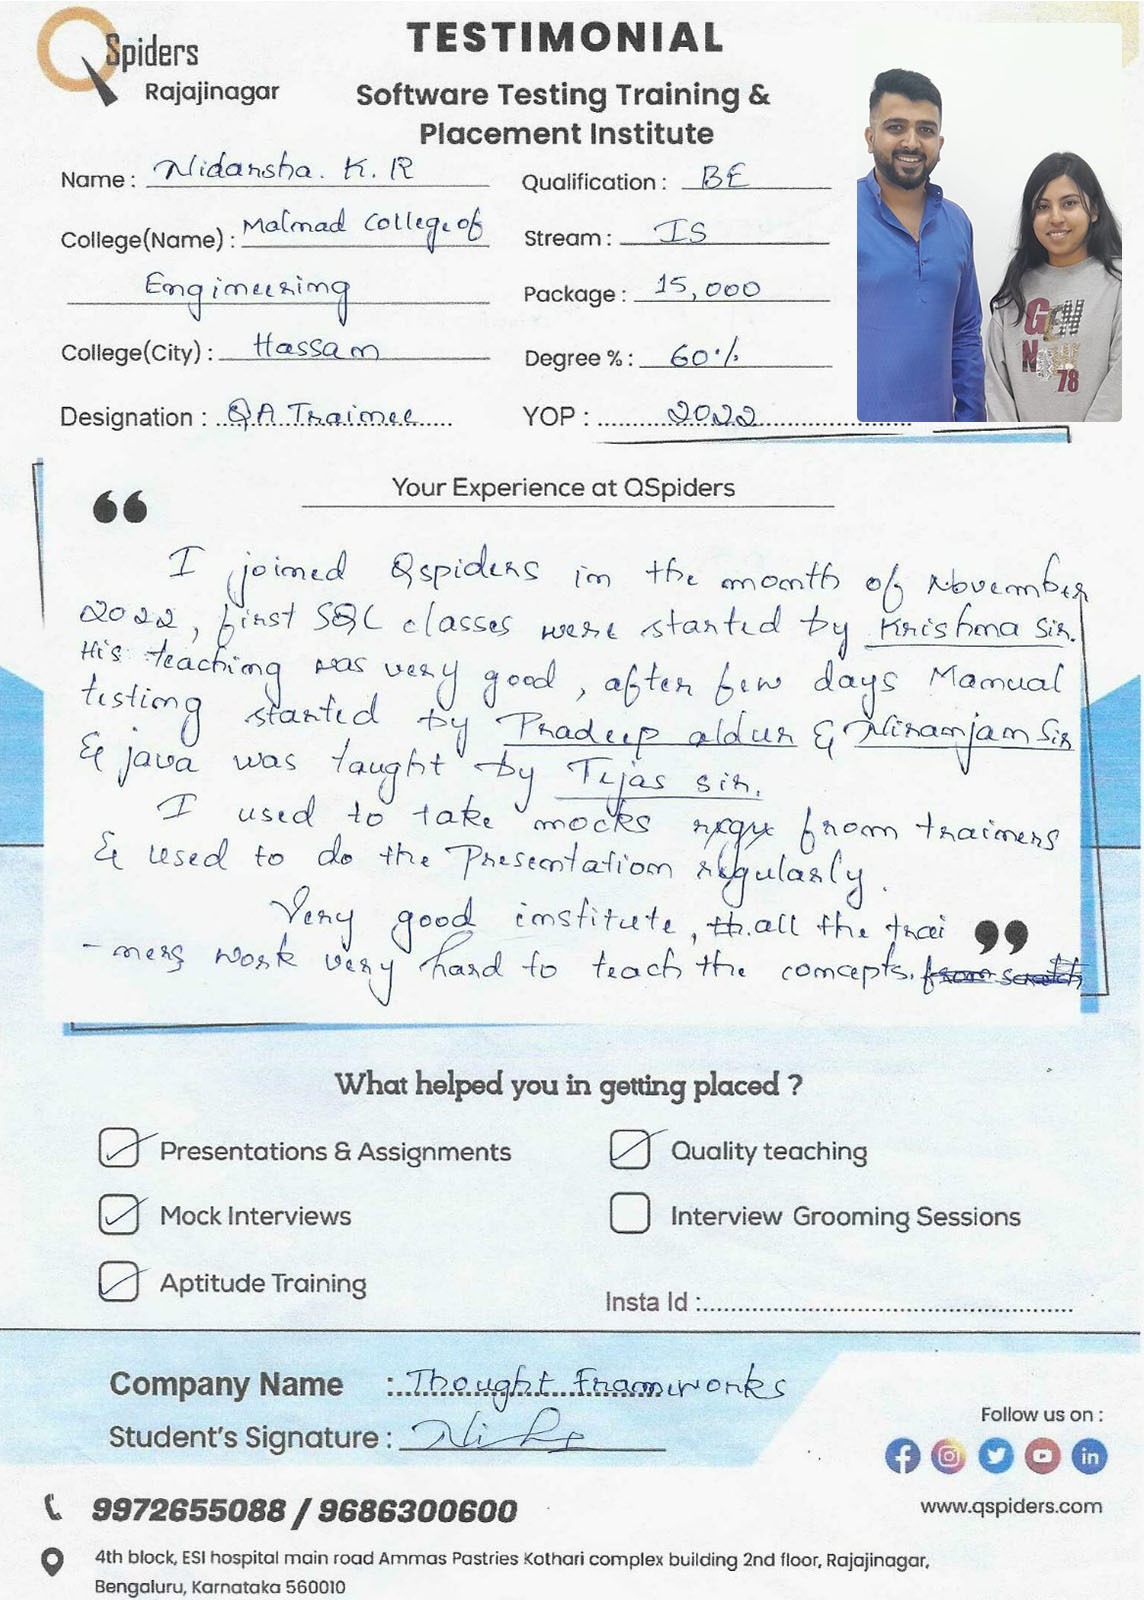 QSpiders
Rajajinagar
TESTIMONIAL
Software Testing Training &
Placement Institute
Name : Nidarsha. K. R
College(Name) : Malnad College of
Engineering
College(City) : Hassan
Designation : QA Trainee
Qualification : BE
Stream : IS
Package : 15,000
Degree % : 60%
YOP : 2022
GEN
78
Your Experience at QSpiders
“
I joined Qspiders in the month of November
2022, first SQL classes were started by Krishna Sir.
His teaching was very good, after few days Manual
testing started by Pradeep aldur & Niranjan Sir
& java was taught by Tejas sir.
I used to take mocks from trainers
& used to do the Presentation regularly.
Very good institute, th. all the trai
-ners work very hard to teach the concepts. from scratch
”
What helped you in getting placed ?
Presentations & Assignments
Mock Interviews
Aptitude Training
Quality teaching
Interview Grooming Sessions
Insta Id :
Company Name : Thought Frameworks
Student's Signature :
Follow us on :
www.qspiders.com
9972655088 / 9686300600
4th block, ESI hospital main road Ammas Pastries Kothari complex building 2nd floor, Rajajinagar,
Bengaluru, Karnataka 560010